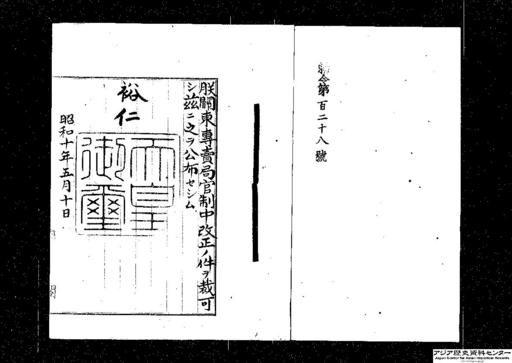 勅令第百二十八號
朕關東專賣局官制中改正ノ件ヲ裁可
シ茲ニ之ヲ公布セシム
裕仁
天皇御璽
昭和十年五月十日
アジア歴史資料センター
Japan Center for Asian Historical Records